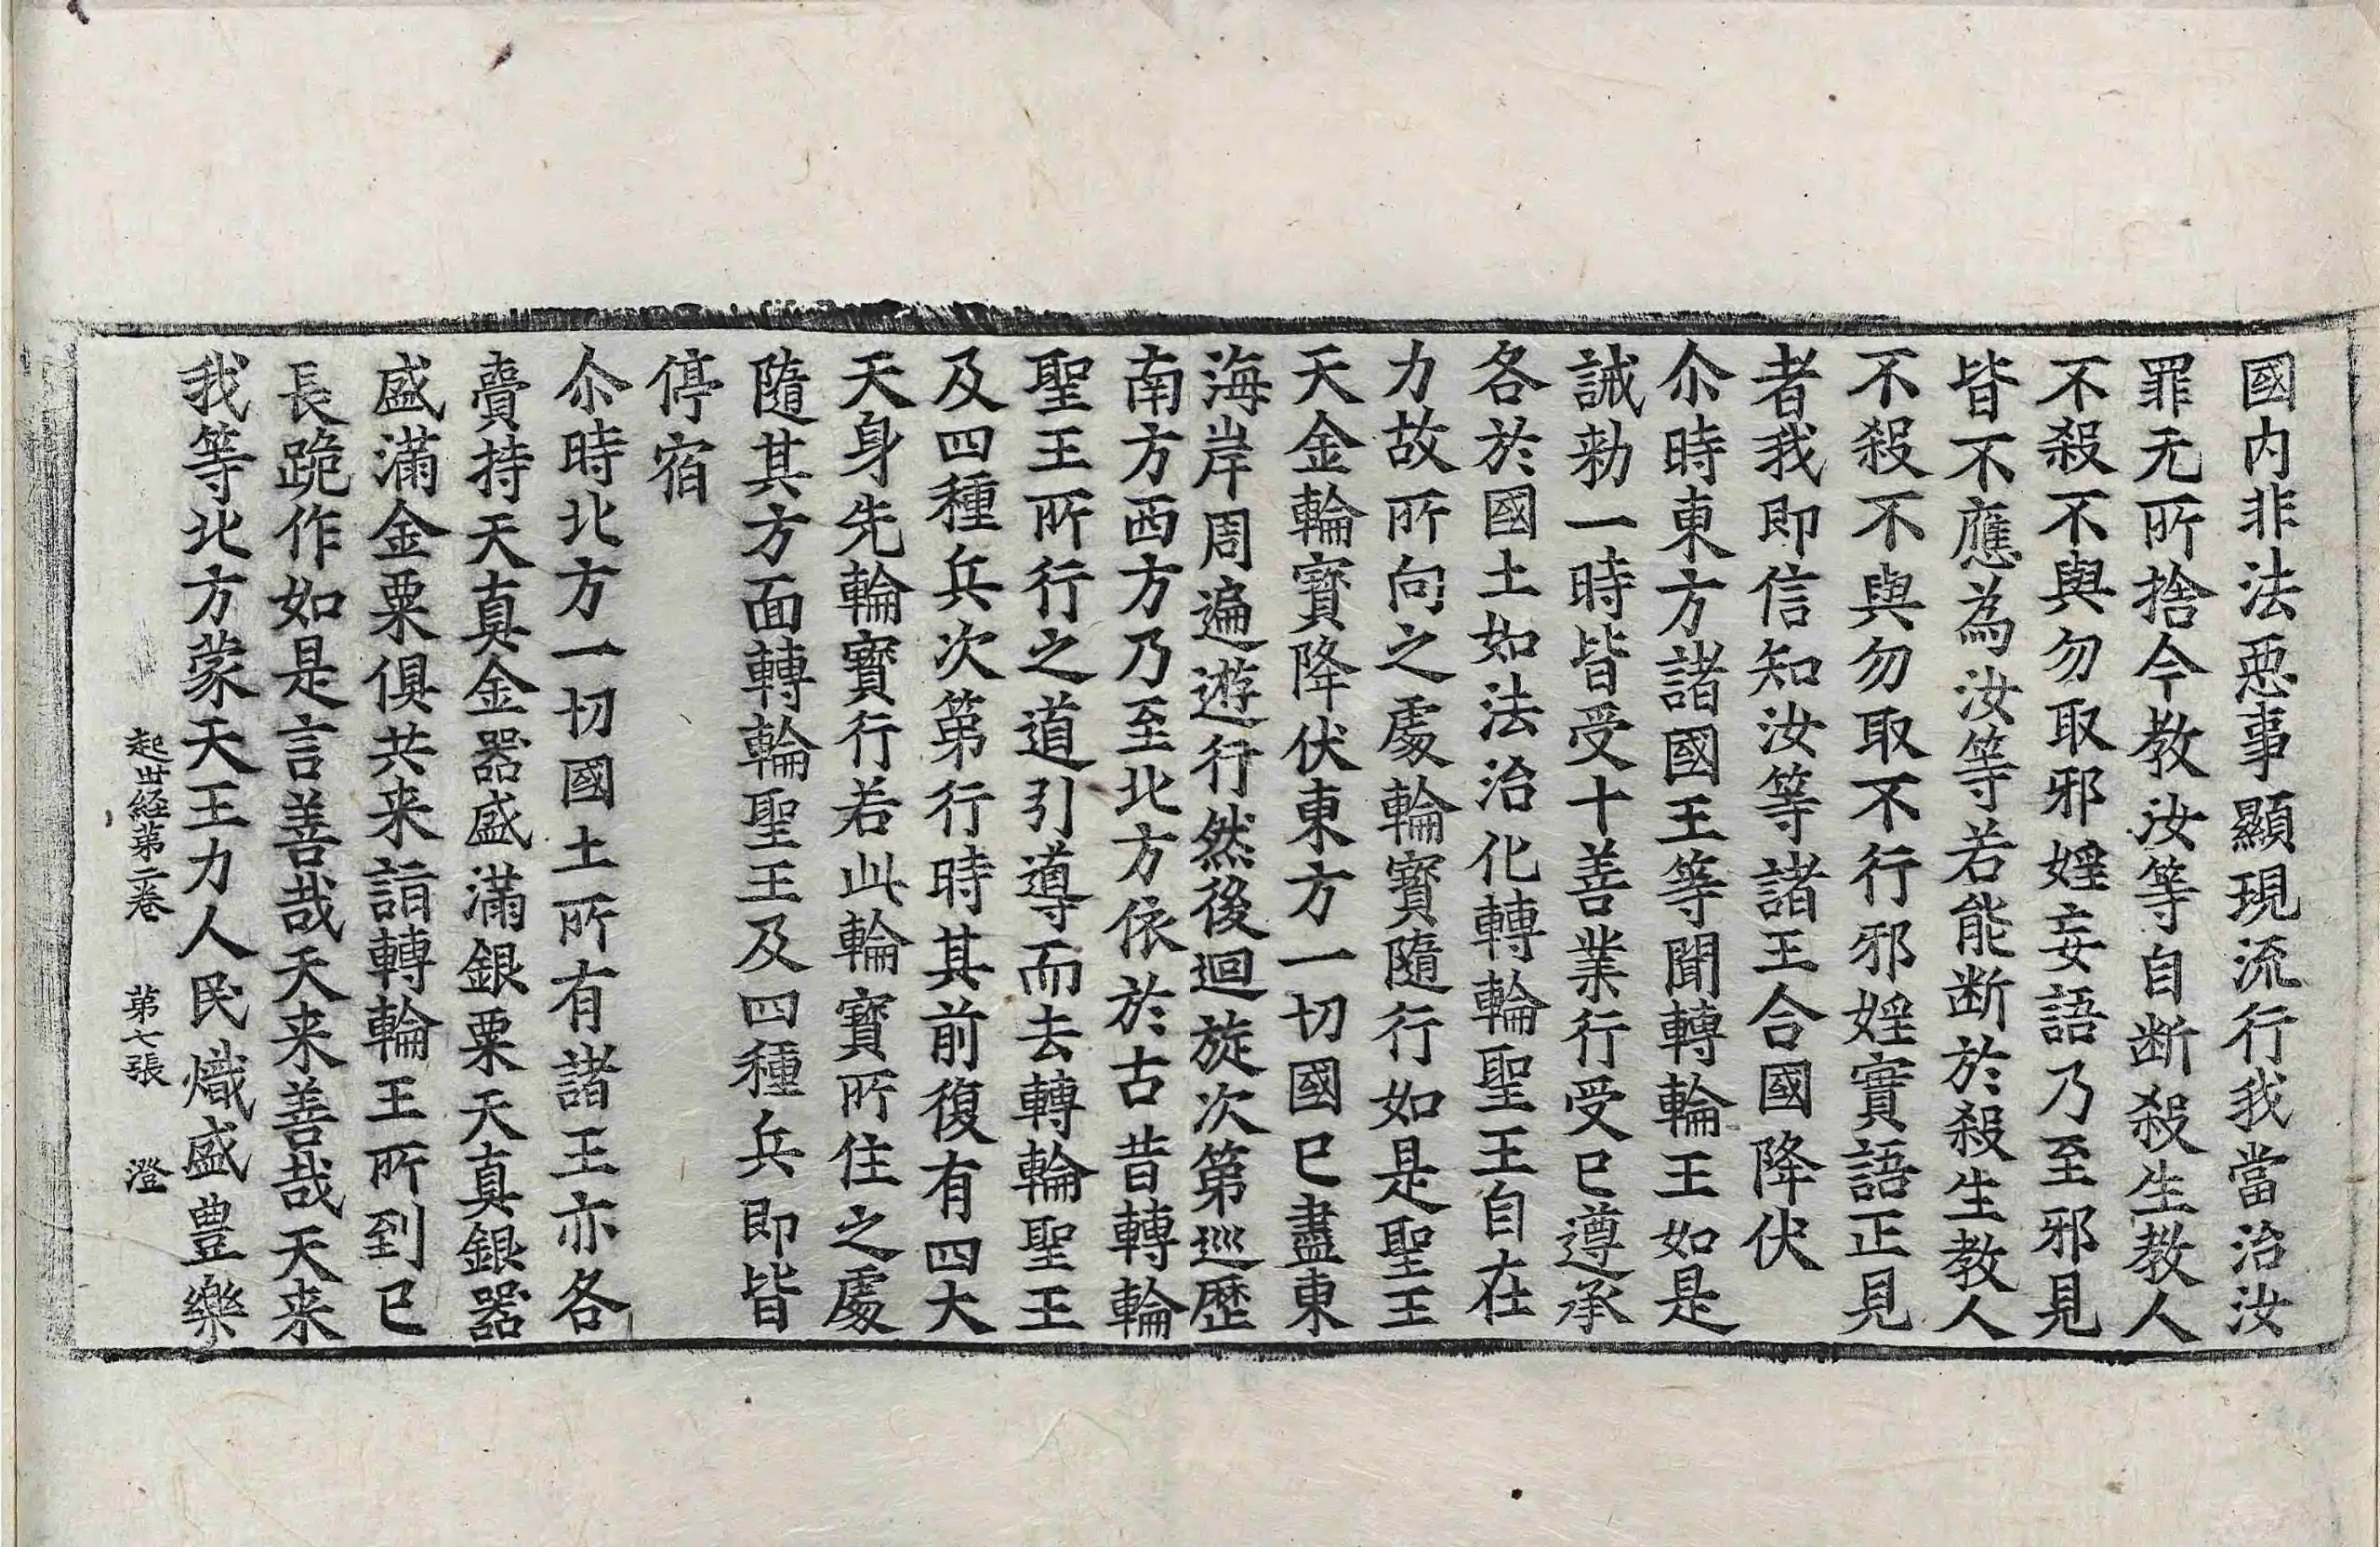 國内非法惡事顯現流行我當治汝
罪无所捨今教汝等自断殺生教人
不殺不與勿取邪婬妄語乃至邪見
皆不應為汝等若能断於殺生教人
不殺不與勿取不行邪婬實語正見
者我即信知汝等諸王合國降伏
尒時東方諸國王等聞轉輪王如是
誡勑一時皆受十善業行受已遵承
各於國土如法治化轉輪聖王自在
力故所向之處輪寳隨行如是聖王
天金輪寳降伏東方一切國已盡東
海岸周遍遊行然後迴旋次第巡歷
南方西方乃至北方依於古昔轉輪
聖王所行之道引導而去轉輪聖王
及四種兵次第行時其前復有四大
天身先輪寳行若此輪寳所住之處
隨其方面轉輪聖王及四種兵即皆
停宿
尒時北方一切國土所有諸王亦各
賷持天真金器盛滿銀粟天真銀器
盛滿金粟俱共来詣轉輪王所到已
長跪作如是言善哉天来善哉天来
我等北方蒙天王力人民熾盛豊樂
起世経第二卷 第七張 澄